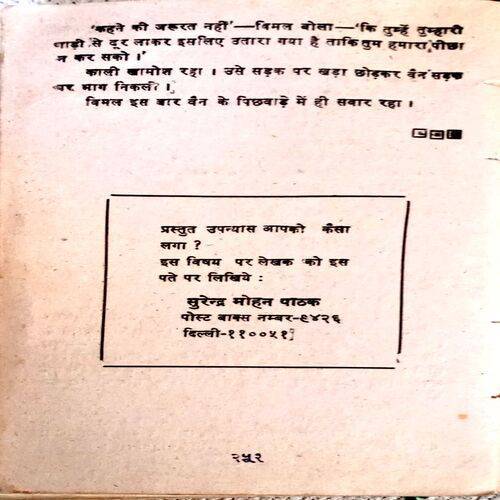 'कहने की जरूरत नहीं'—विमल बोला—'कि तुम्हें तुम्हारी
गाड़ी से दूर लाकर इसलिए उतारा गया है ताकि तुम हमारा पीछा
न कर सको ।'
काली खामोश रहा । उसे सड़क पर खड़ा छोड़कर वैन सड़क
पर भाग निकली ।
विमल इस बार वैन के पिछवाड़े में ही सवार रहा ।
प्रस्तुत उपन्यास आपको कैसा
लगा ?
इस विषय पर लेखक को इस
पते पर लिखिये :
सुरेन्द्र मोहन पाठक
पोस्ट बाक्स नम्बर-९४२६
दिल्ली-११००५१
२५२